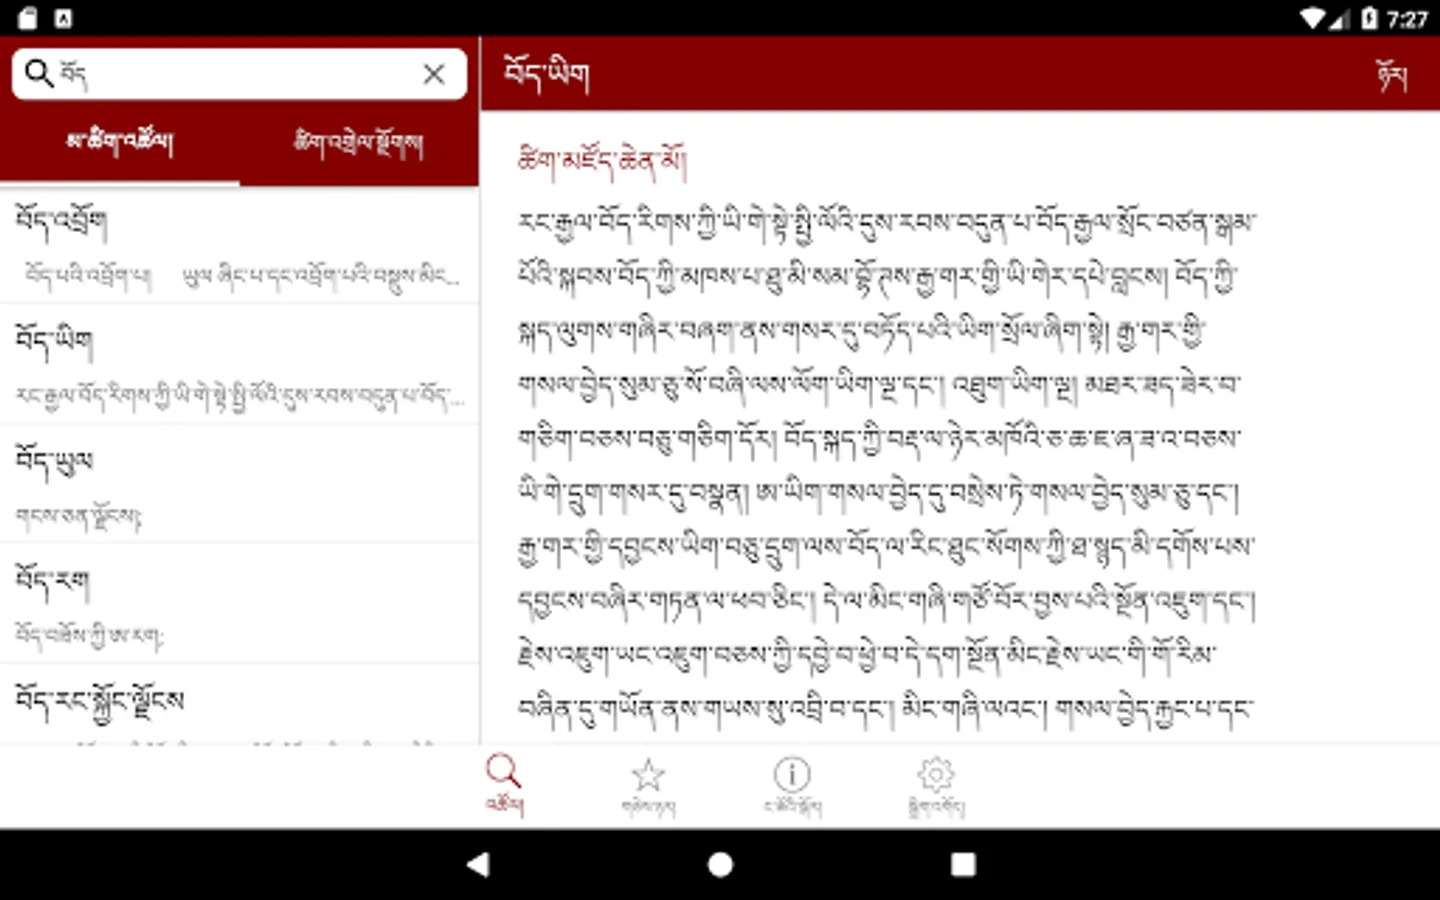 7:27
བོད
མ་ཚིག་འཚོལ།
ཚིག་འགྲེལ་སྔོགས།
བོད་འབྲོག
བོད་པའི་འབྲོག་པ། ཡུལ་ཞིང་པ་དང་འབྲོག་པའི་བསྡུས་མིང...
བོད་ཡིག
རང་རྒྱལ་བོད་རིགས་ཀྱི་ཡི་གེ་སྟེ་སྤྱི་ལོའི་དུས་རབས་བདུན་པ་བོད་...
བོད་ཡུལ
གངས་ཅན་ལྗོངས།;
བོད་རག
བོད་བཟོས་ཀྱི་ཨ་རག;
བོད་རང་སྐྱོང་ལྗོངས
བོད་ཡིག
ཉོར།
ཚིག་མཛོད་ཆེན་མོ།
རང་རྒྱལ་བོད་རིགས་ཀྱི་ཡི་གེ་སྟེ་སྤྱི་ལོའི་དུས་རབས་བདུན་པ་བོད་རྒྱལ་སྲོང་བཙན་སྒམ་
པོའི་སྐབས་བོད་ཀྱི་མཁས་པ་ཐུ་མི་སམ་བྷོ་ཊས་རྒྱ་གར་གྱི་ཡི་གེར་དཔེ་བླངས། བོད་ཀྱི་
སྐད་ལུགས་གཞིར་བཞག་ནས་གསར་དུ་བཏོད་པའི་ཡིག་སྲོལ་ཞིག་སྟེ། རྒྱ་གར་གྱི་
གསལ་བྱེད་སུམ་ཅུ་སོ་བཞི་ལས་ལོག་ཡིག་ལྔ་དང་། འཐུག་ཡིག་ལྔ། མཐར་ཟད་ཟེར་བ་
གཅིག་བཅས་བཅུ་གཅིག་དོར། བོད་སྐད་ཀྱི་བརྡ་ལ་ཉེར་མཁོའི་ཅ་ཆ་ཇ་ཞ་ཟ་འ་བཅས་
ཡི་གེ་དྲུག་གསར་དུ་བསྣན། ཨ་ཡིག་གསལ་བྱེད་དུ་བསྲེས་ཏེ་གསལ་བྱེད་སུམ་ཅུ་དང་།
རྒྱ་གར་གྱི་དབྱངས་ཡིག་བཅུ་དྲུག་ལས་བོད་ལ་རིང་ཐུང་སོགས་ཀྱི་ཐ་སྙད་མི་དགོས་པས་
དབྱངས་བཞིར་གཏན་ལ་ཕབ་ཅིང་། དེ་ལ་མིང་གཞི་གཙོ་བོར་བྱས་པའི་སྔོན་འཇུག་དང་།
རྗེས་འཇུག་ཡང་འཇུག་བཅས་ཀྱི་དབྱེ་བ་ཕྱེ་བ་དེ་དག་སྔོན་མིང་རྗེས་ཡང་གི་གོ་རིམ་
བཞིན་དུ་གཡོན་ནས་གཡས་སུ་འབྲི་བ་དང་། མིང་གཞི་ལའང་། གསལ་བྱེད་རྐྱང་པ་དང་
འཚོལ།
སྒྲིག་འགོད།